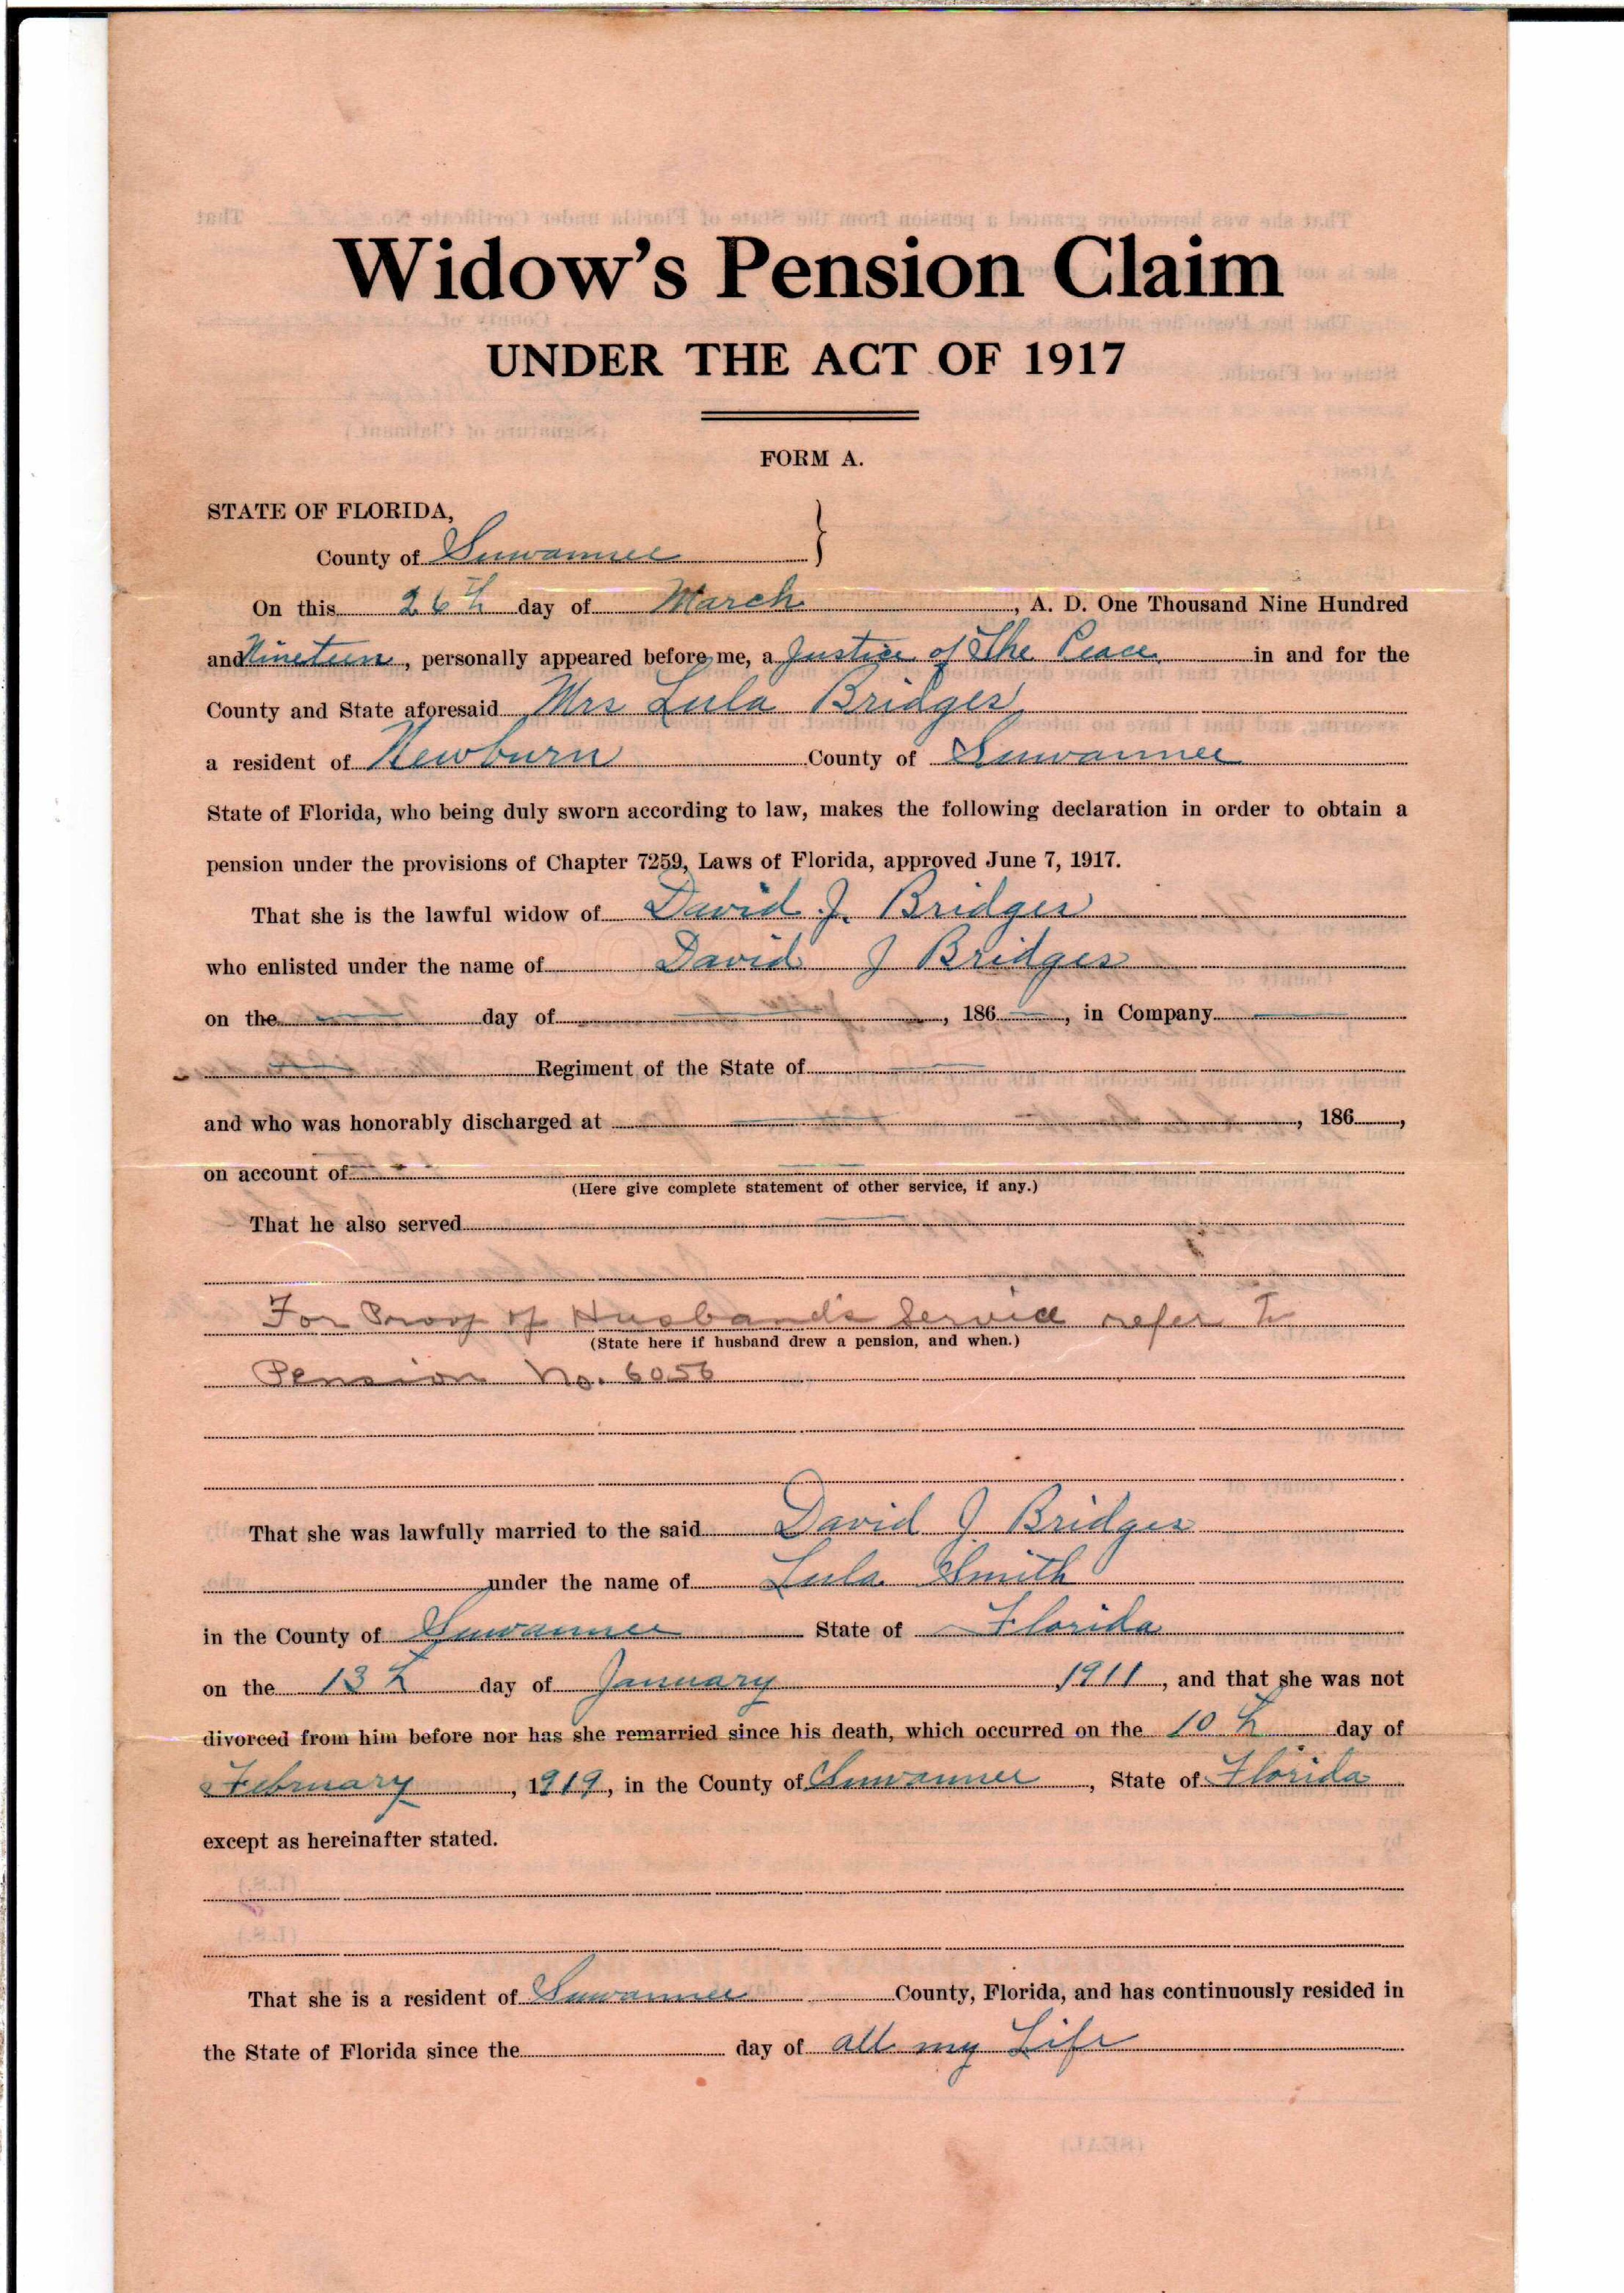 Widow's Pension Claim
UNDER THE ACT OF 1917
FORM A.
STATE OF FLORIDA,
County of Suwannee
On this 26th day of March, A. D. One Thousand Nine Hundred
and Nineteen, personally appeared before me, a Justice of The Peace in and for the
County and State aforesaid Mrs Lula Bridges
a resident of Newburn County of Suwannee
State of Florida, who being duly sworn according to law, makes the following declaration in order to obtain a
pension under the provisions of Chapter 7259, Laws of Florida, approved June 7, 1917.
That she is the lawful widow of David J. Bridges
who enlisted under the name of David J Bridges
on the day of , 186 , in Company
Regiment of the State of
and who was honorably discharged at , 186 ,
on account of
(Here give complete statement of other service, if any.)
That he also served
For Proof of Husband's Service refer to
(State here if husband drew a pension, and when.)
Pension No. 6056
That she was lawfully married to the said David J Bridges
under the name of Lula Smith
in the County of Suwannee State of Florida
on the 13th day of January 1911, and that she was not
divorced from him before nor has she remarried since his death, which occurred on the 10th day of
February, 1919, in the County of Suwannee, State of Florida
except as hereinafter stated.
That she is a resident of Suwannee County, Florida, and has continuously resided in
the State of Florida since the day of all my Life